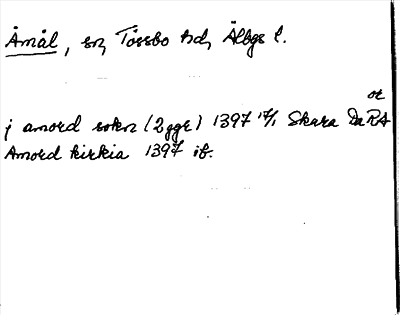 Åmål, sn, Tössbo hd, Älvbgs l.
or
j amord sokn (2 ggr) 1397 17/1 Skara DaRA
Amord kirkia 1397 ib.